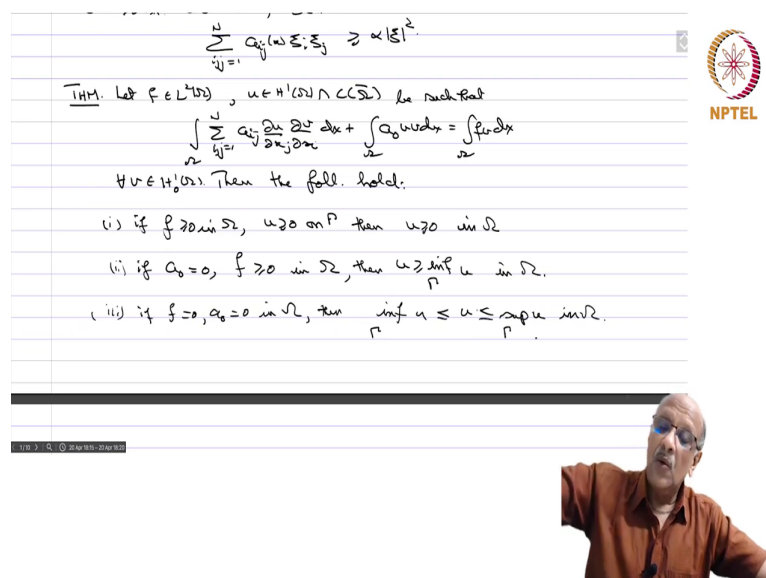 N
∑ aᵢⱼ(x) ξᵢ ξⱼ ≥ α|ξ|².
i,j=1
THM. Let f ∈ L²(Ω), u ∈ H¹(Ω) ∩ C(Ω̄) be such that
∫_Ω ∑_{i,j=1}^N aᵢⱼ ∂u/∂xⱼ ∂v/∂x dx + ∫_Ω a₀uv dx = ∫_Ω fv dx
∀ v ∈ H₀¹(Ω). Then the foll. hold:
(i) if f ≥ 0 in Ω, u ≥ 0 on Γ then u ≥ 0 in Ω
(ii) if a₀ = 0, f ≥ 0 in Ω, then u ≥ inf_Γ u in Ω.
(iii) if f = 0, a₀ = 0 in Ω, then inf_Γ u ≤ u ≤ sup_Γ u in Ω.
NPTEL
1/10 20 Apr 18:15 – 20 Apr 18:20